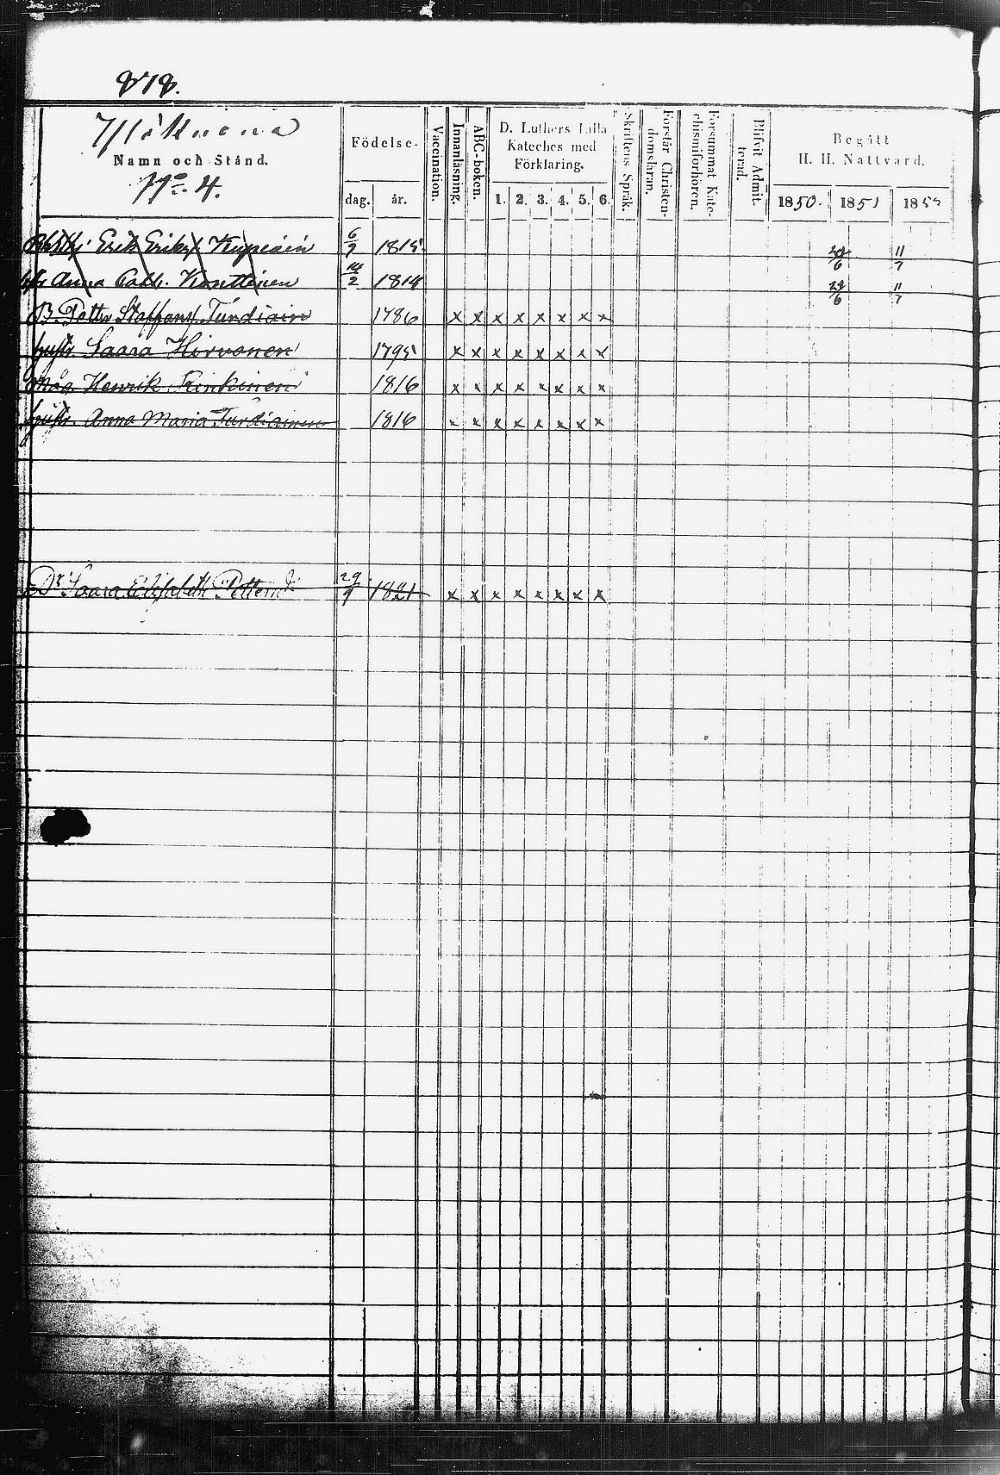 878.
Namn och Stånd.
No 4.
Födelse-
dag. år.
Vaccination.
Innanläsning.
ABC-boken.
D. Luthers Lilla
Kateches med
Förklaring.
1. 2. 3. 4. 5. 6.
Skriftens Språk.
Förstår Christen-
domsläran.
Försummat Kate-
chismiförhören.
Blifvit Admit-
terad.
Begått
H. H. Nattvard.
1850. 1851 185
Erik Eriks 6/9 1815 11/7
Anna Cath. Konttinen 1814 11/7
B. Petter Staffans Turdiain 1786 x x x x x x x x
hustr. Saara Hirvonen 1795 x x x x x x x x
Måg Henrik Kinkinen 1816 x x x x x x x x
hustr. Anna Maria Turdiainen 1816 x x x x x x x x
Dr Saara Elisabeth Pettersd. 29/9 1821 x x x x x x x x